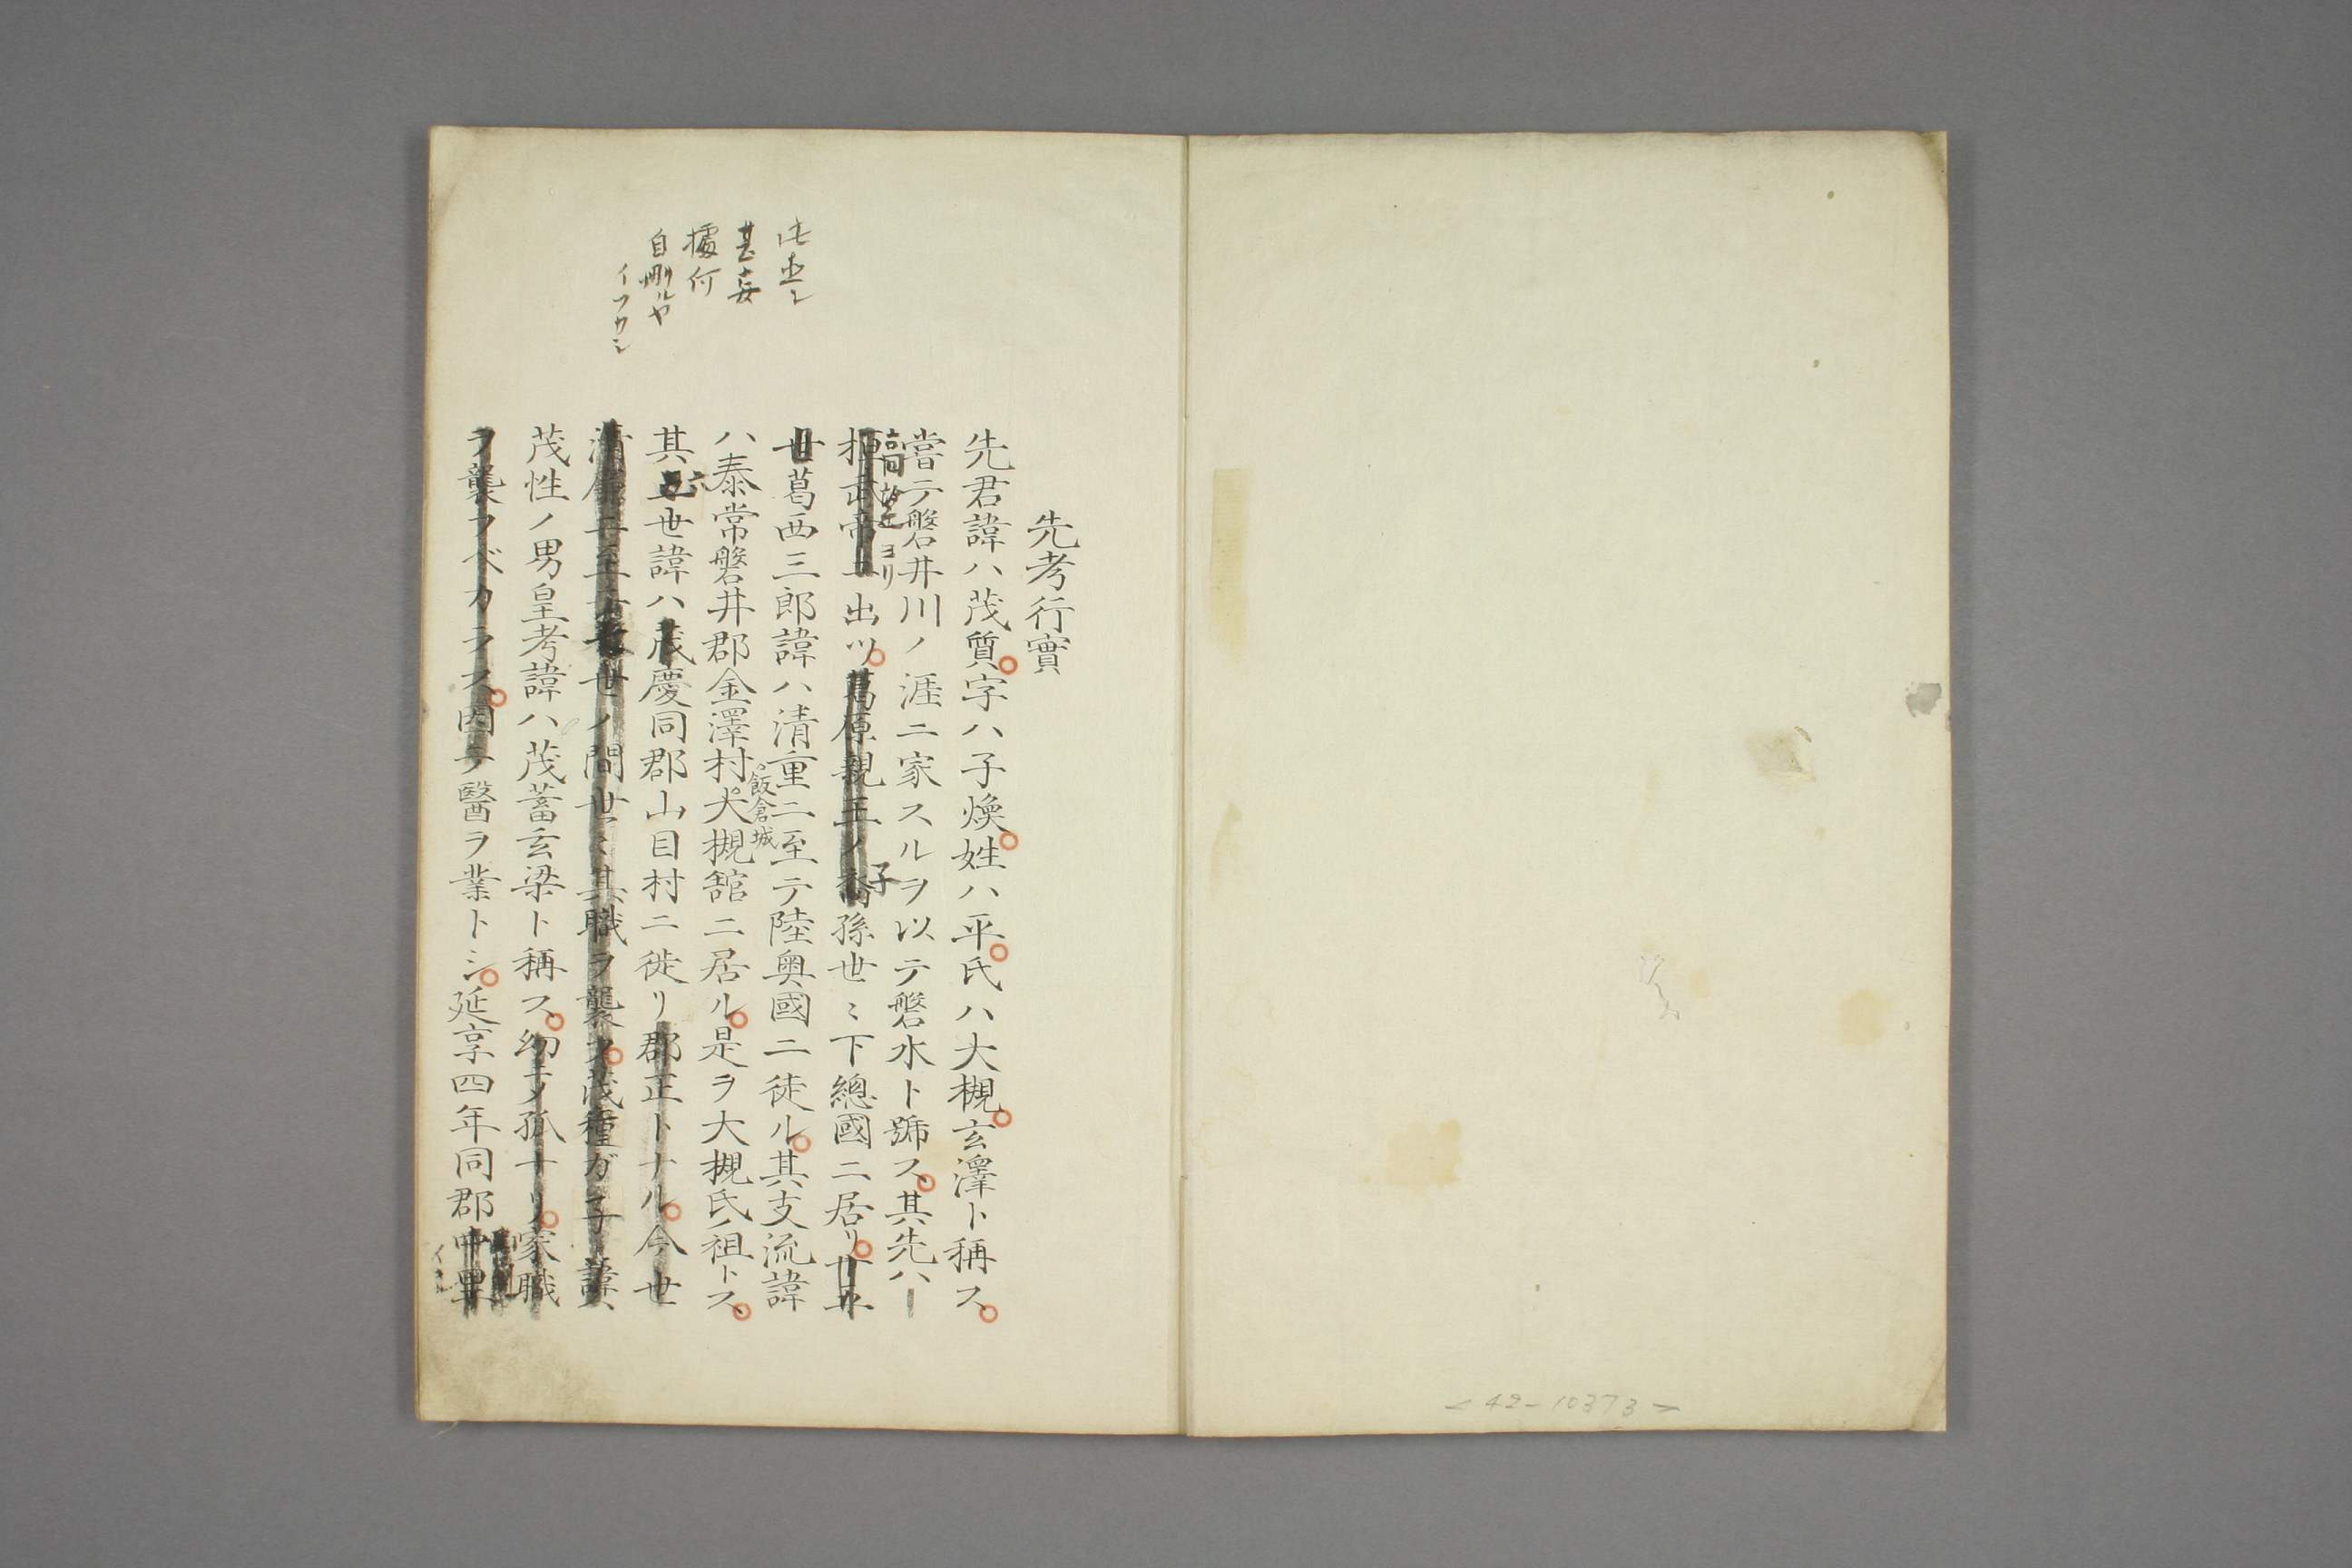 先考行實
先君諱ハ茂質字ハ子煥姓ハ平氏ハ大槻玄澤ト稱ス
嘗テ磐井川ノ涯ニ家スルヲ以テ磐水ト號ス其先ハ
高望王ヨリ
桓武帝ニ出ツ葛原親王ノ裔孫世ミ下總國ニ居リ廿
子
世葛西三郎諱ハ清重ニ至テ陸奥國ニ徒ル其支流諱
ハ泰常磐井郡金澤村大槻舘ニ居ル是ヲ大槻氏ノ祖トス
飯倉城
其五世諱ハ茂慶同郡山目村ニ徙リ郡正トナル今世
六
ニ至ノ間世ミ其職ヲ襲フ茂種ガ子諱ハ
茂性ノ男皇考諱ハ茂蓄玄梁ト稱ス幼ニノ孤ナリ家職
ヲ襲フベカラス因テ醫ヲ業トシ延享四年同郡中里
此
甚妄
據何
自刪ルヤ
イフカシ
<42-10373>